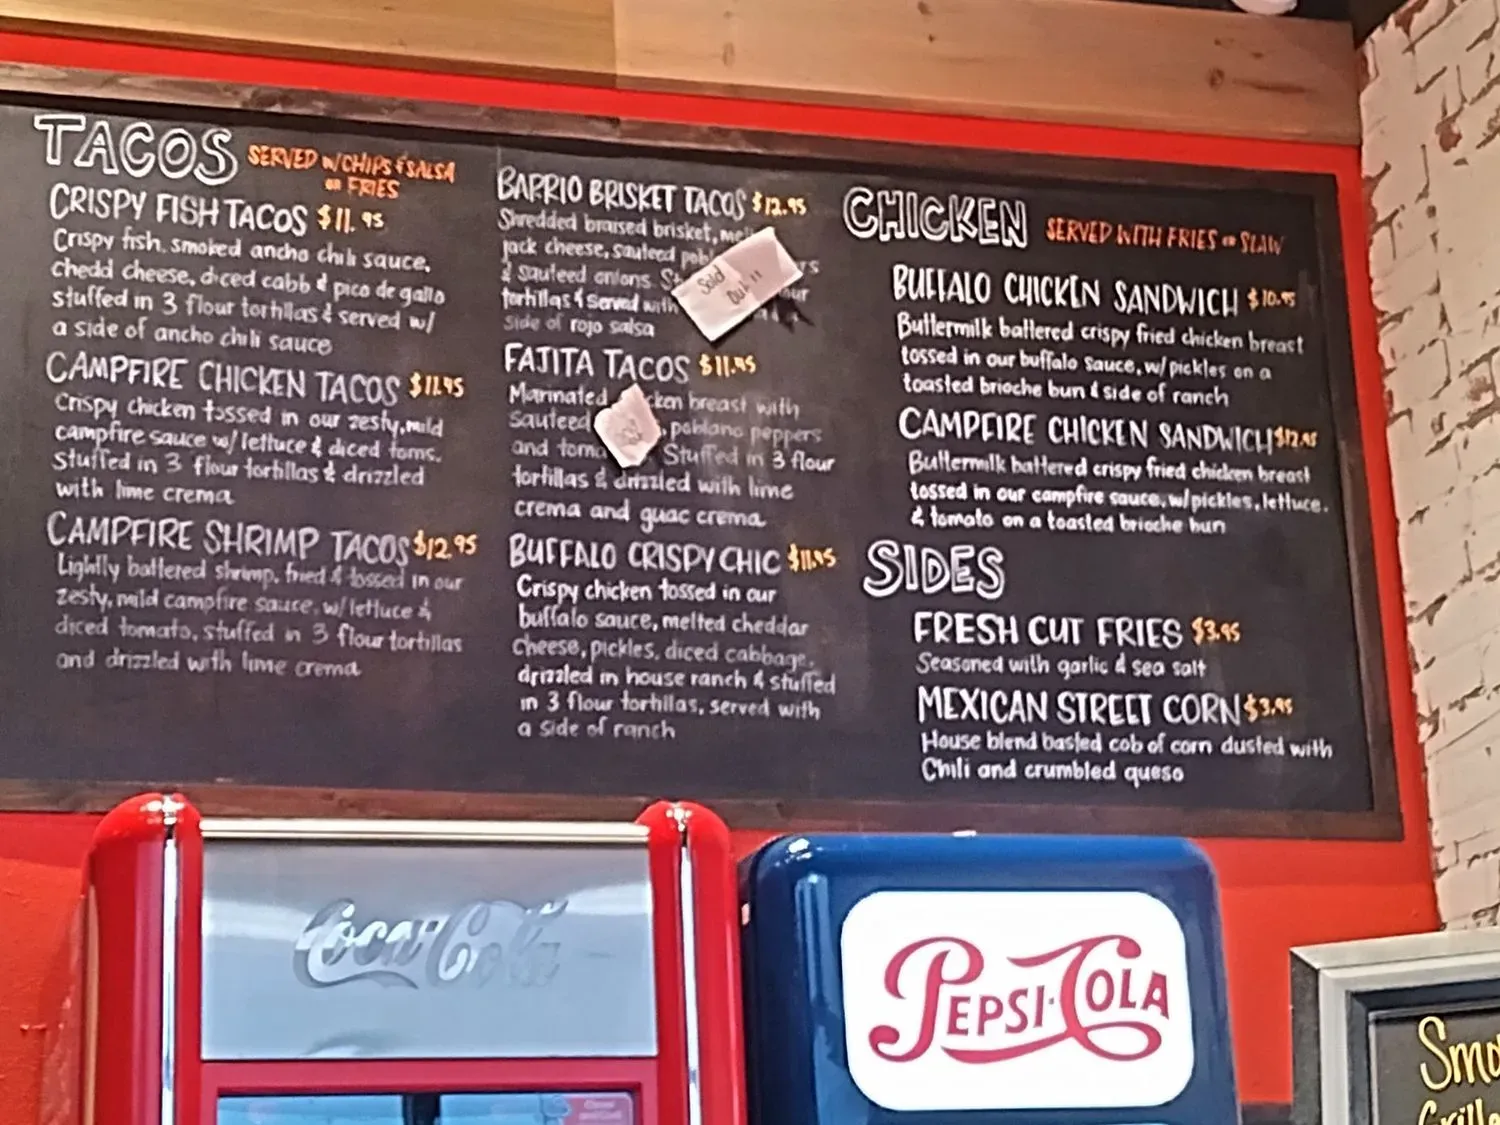 TACOS SERVED W/CHIPS & SALSA
OR FRIES
CRISPY FISH TACOS $11.95
Crispy fish, smoked ancho chili sauce,
chedd cheese, diced cabb & pico de gallo
stuffed in 3 flour tortillas & served w/
a side of ancho chili sauce
CAMPFIRE CHICKEN TACOS $11.95
Crispy chicken tossed in our zesty, mild
campfire sauce w/ lettuce & diced toms.
Stuffed in 3 flour tortillas & drizzled
with lime crema
CAMPFIRE SHRIMP TACOS $12.95
Lightly battered shrimp, fried & tossed in our
zesty, mild campfire sauce, w/ lettuce &
diced tomato, stuffed in 3 flour tortillas
and drizzled with lime crema
BARRIO BRISKET TACOS $12.95
Shredded braised brisket,
jack cheese, sauteed
& sauteed onions.
tortillas & served with
side of rojo salsa
Sold
Out !!
FAJITA TACOS $11.95
Marinated breast with
Sauteed poblano peppers
and Stuffed in 3 flour
tortillas & drizzled with lime
crema and guac crema
BUFFALO CRISPY CHIC $11.95
Crispy chicken tossed in our
buffalo sauce, melted cheddar
cheese, pickles, diced cabbage,
drizzled in house ranch & stuffed
in 3 flour tortillas, served with
a side of ranch
CHICKEN SERVED WITH FRIES OR SLAW
BUFFALO CHICKEN SANDWICH $10.95
Buttermilk battered crispy fried chicken breast
tossed in our buffalo sauce, w/ pickles on a
toasted brioche bun & side of ranch
CAMPFIRE CHICKEN SANDWICH $12.95
Buttermilk battered crispy fried chicken breast
tossed in our campfire sauce, w/ pickles, lettuce,
& tomato on a toasted brioche bun
SIDES
FRESH CUT FRIES $3.95
Seasoned with garlic & sea salt
MEXICAN STREET CORN $3.95
House blend basted cob of corn dusted with
Chili and crumbled queso
Coca-Cola
PEPSI-COLA